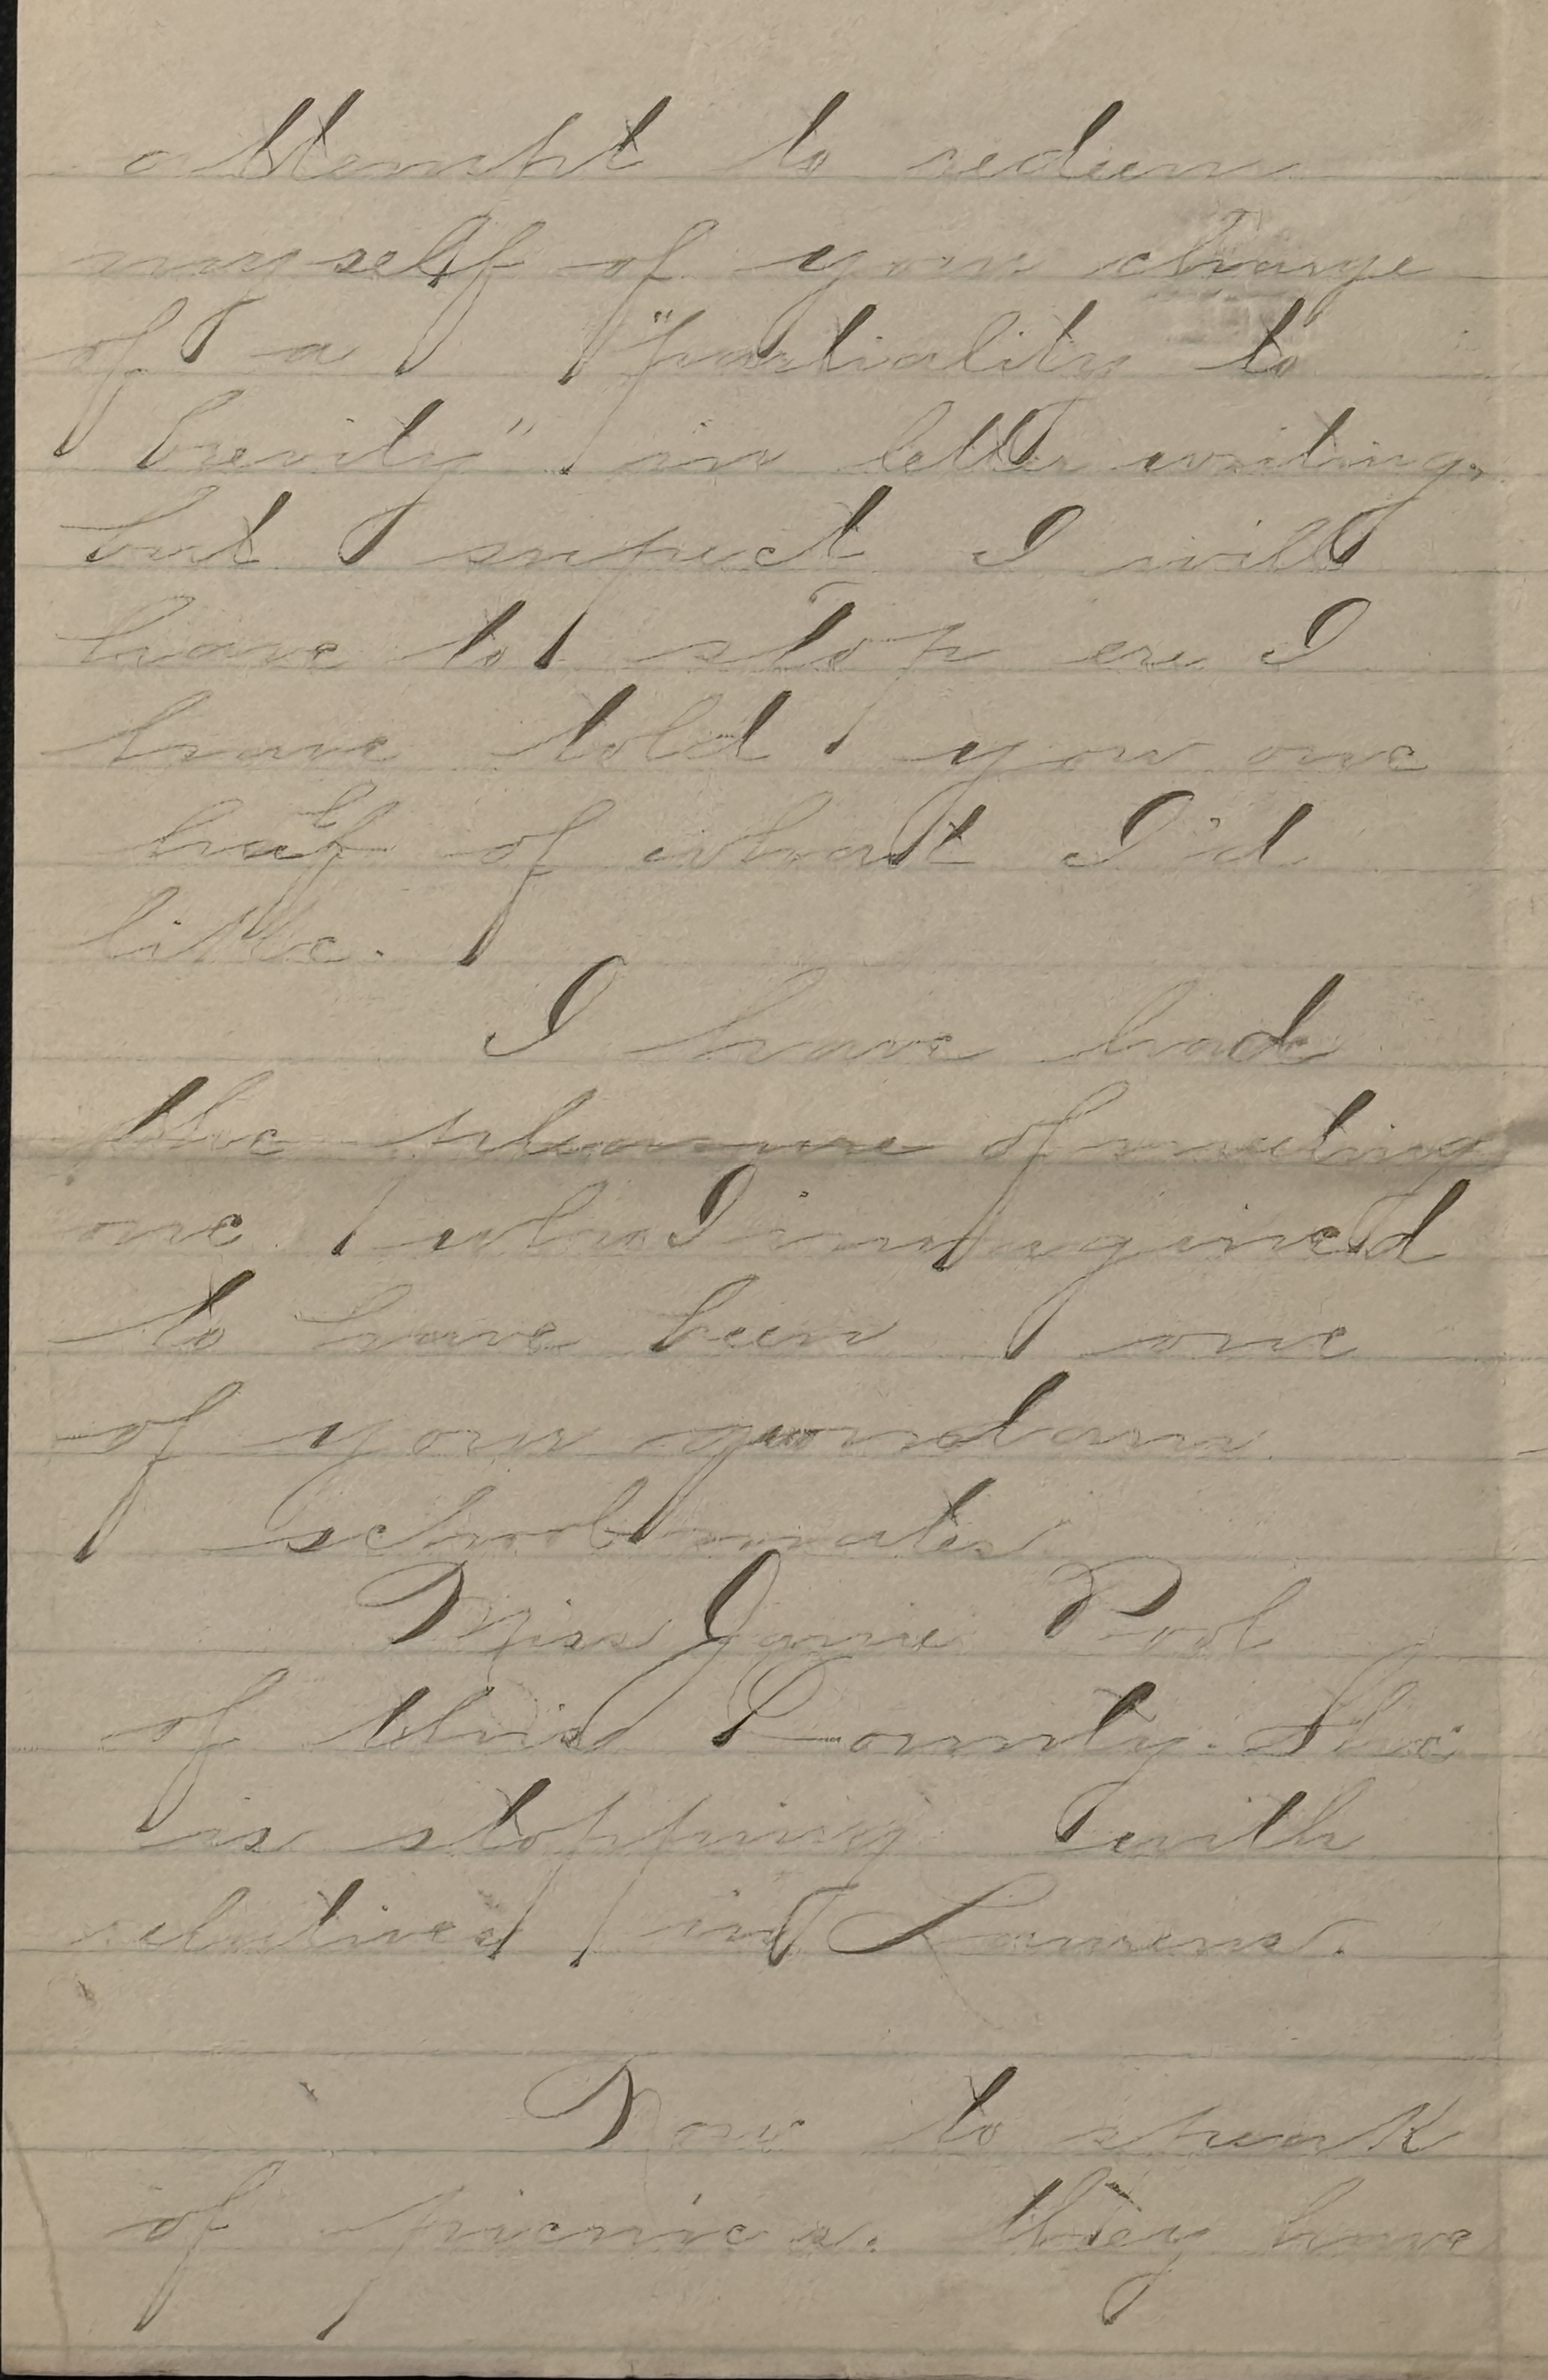 attempt to redeem
myself of your charge
of a "partiality to
brevity" in letter writing,
but I suspect I will
have to stop ere I
have told you one
half of what I'd
like.
I have had
the pleasure of meeting
one who I immagined
to have been one
of your quondam
schoolmates
Miss Janie Pool
of this County. She
is stopping with
relatives in Laurens.
Now to speak
of picnics. they have